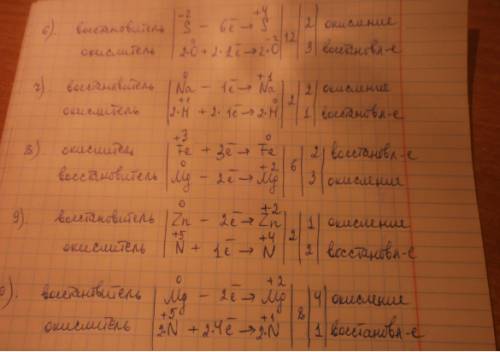 6) восстановитель | S⁻² − 6ē → S⁺⁴ | 12 | 2 | окисление
окислитель | 2·O⁰ + 2·2ē → 2·O⁻² | 3 | восстановл-е
7) восстановитель | Na⁰ − 1ē → Na⁺¹ | 2 | 2 | окисление
окислитель | 2·H⁺¹ + 2·1ē → 2·H⁰ | 1 | восстановл-е
8) окислитель | Fe⁺³ + 3ē → Fe⁰ | 6 | 2 | восстановл-е
восстановитель | Mg⁰ − 2ē → Mg⁺² | 3 | окисление
9). восстановитель | Zn⁰ − 2ē → Zn⁺² | 2 | 1 | окисление
окислитель | N⁺⁵ + 1ē → N⁺⁴ | 2 | восстановл-е
0). восстановитель | Mg⁰ − 2ē → Mg⁺² | 8 | 4 | окисление
окислитель | 2·N⁺⁵ + 2·4ē → 2·N⁺¹ | 1 | восстановл-е